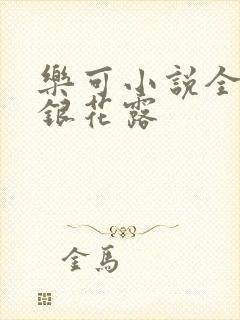 樂可小説全
銀花露
金馬